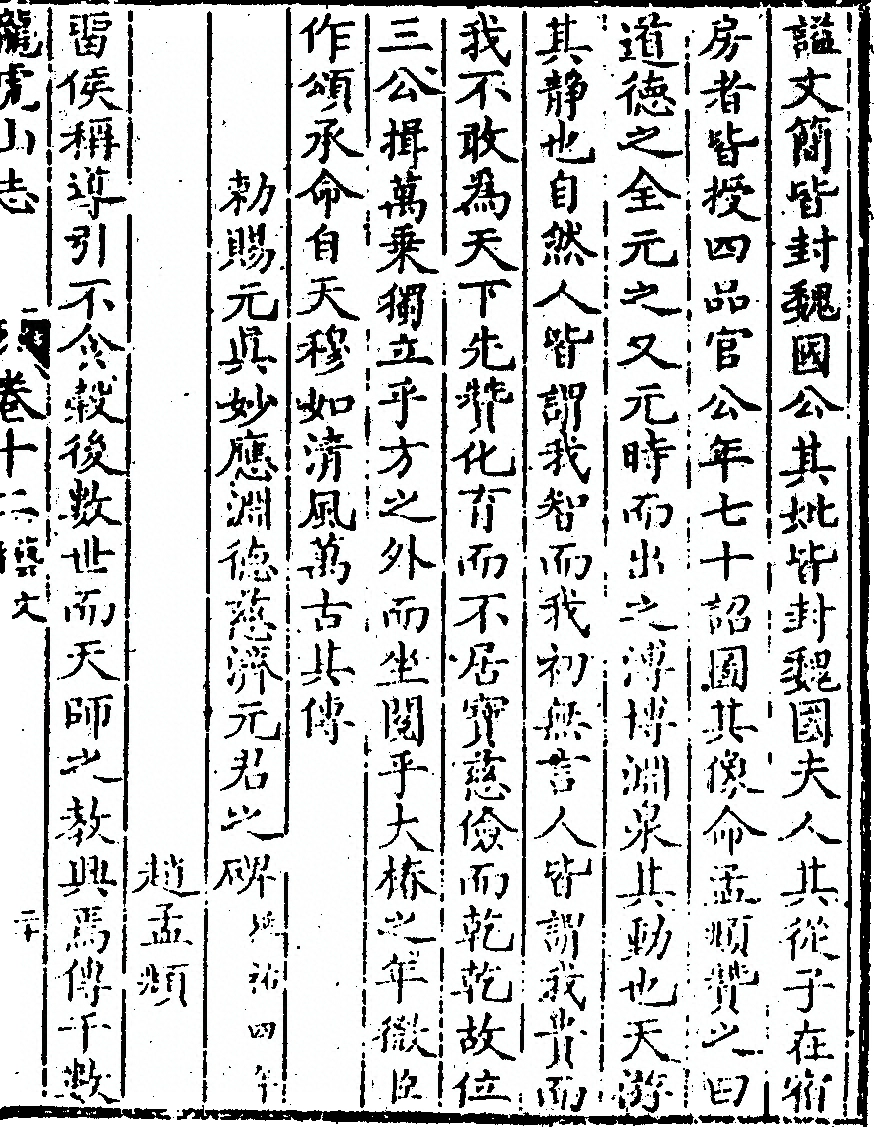 謚文簡皆封魏國公其妣皆封魏國夫人其從子在宿
房者皆授四品官公年七十詔圖其像命孟頫贊之曰
道德之全元之又元時而出之溥博淵泉其動也天游
其靜也自然人皆謂我智而我初無言人皆謂我貴而
我不敢為天下先贊化育而不居寶慈儉而乾乾故位
三公揖萬乗獨立乎方之外而坐閱乎大椿之年微臣
作頌承命自天穆如清風萬古其傳
勅賜元眞妙應淵德慈濟元君之碑延祐四年
趙孟頫
畱侯稱導引不食穀後數世而天師之教興焉傳千數
龍虎山志
卷十二藝文
二十